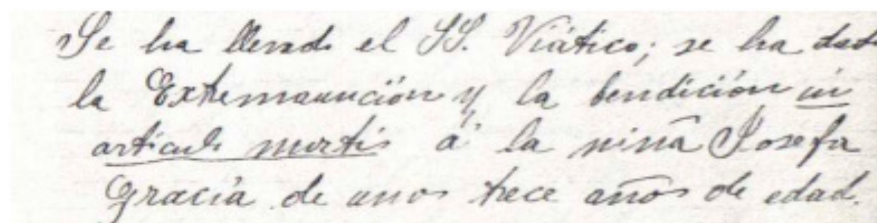 Se ha llevado el SS. Viático; se ha dado
la Extremaunción y la bendición in
articulo mortis á la niña Josefa
Gracia de unos trece años de edad.